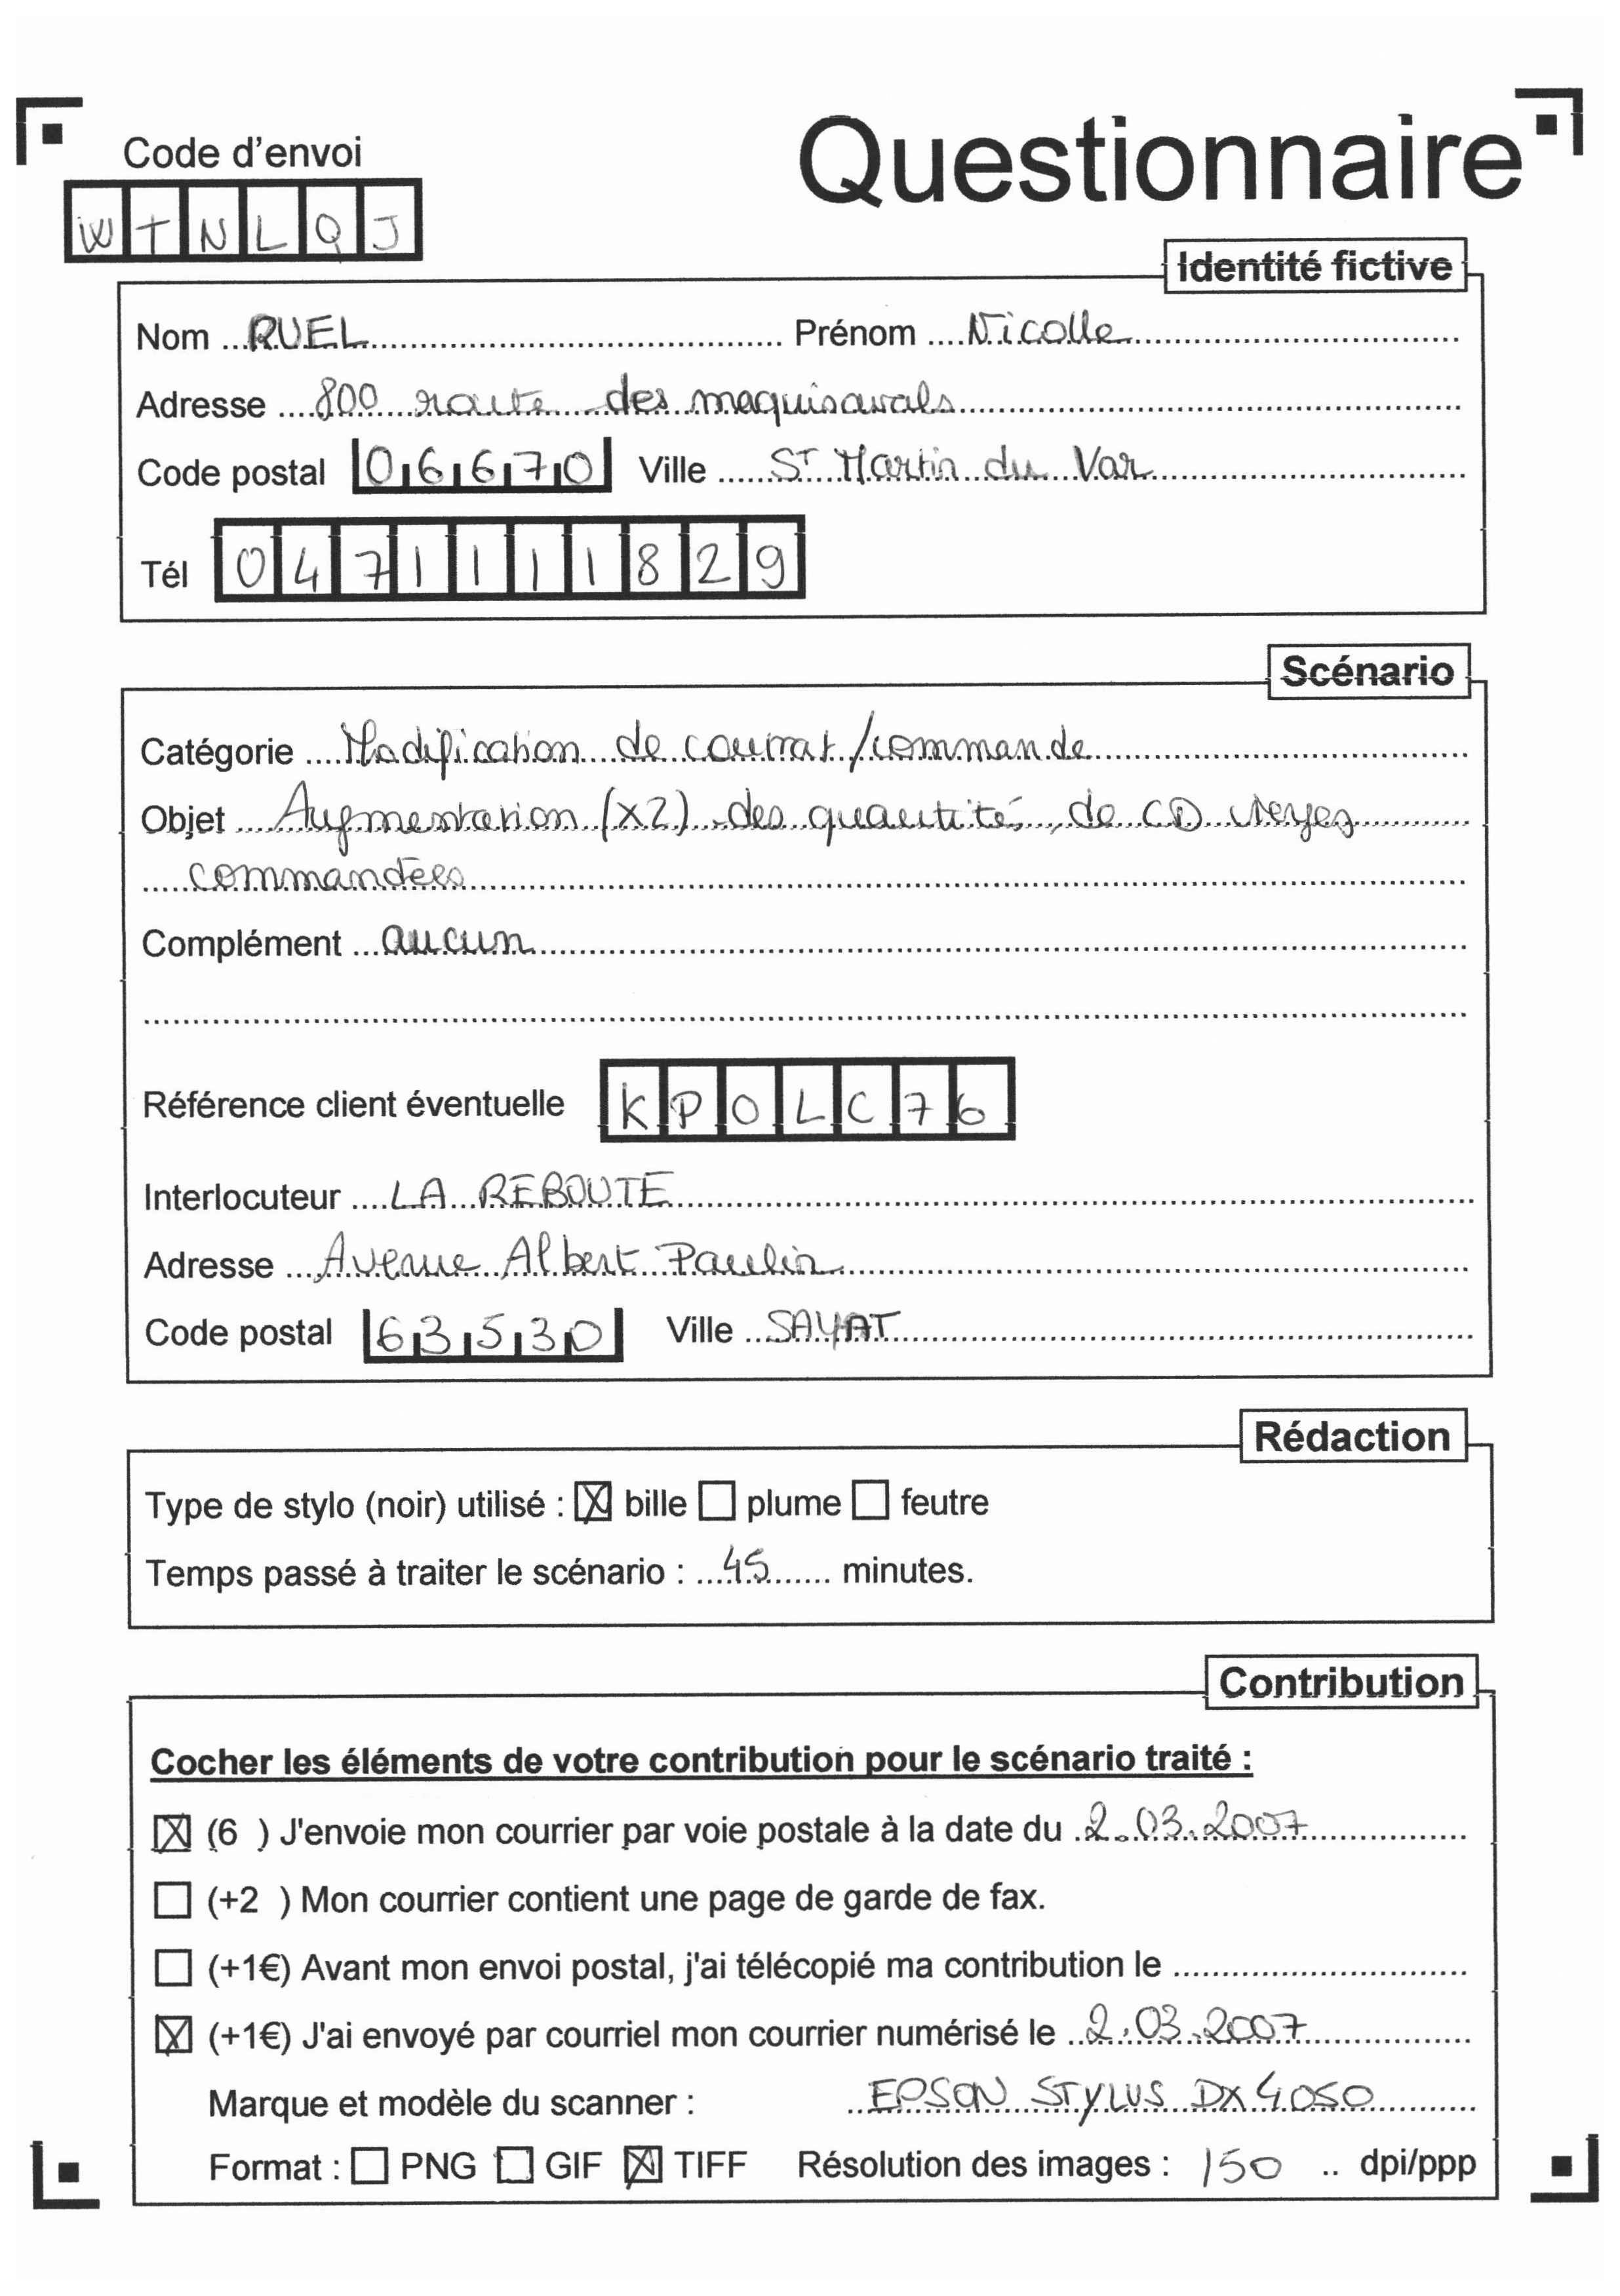 Questionnaire
Code d'envoi
WTNLQJ
Identité fictive
Nom RUEL Prénom Nicolle
Adresse 800 route des maquisards
Code postal 06670 Ville ST Martin du Var
Tél 0471111829
Scénario
Catégorie Modification de contrat/commande
Objet Augmentation (x2) des quantités de CD vierges
commandées
Complément aucun
Référence client éventuelle KPOLC76
Interlocuteur LA REBOUTE
Adresse Avenue Albert Paulin
Code postal 63530 Ville SAYAT
Rédaction
Type de stylo (noir) utilisé : bille plume feutre
Temps passé à traiter le scénario : 45 minutes.
Contribution
Cocher les éléments de votre contribution pour le scénario traité :
(6 ) J'envoie mon courrier par voie postale à la date du 2.03.2007
(+2 ) Mon courrier contient une page de garde de fax.
(+1€) Avant mon envoi postal, j'ai télécopié ma contribution le
(+1€) J'ai envoyé par courriel mon courrier numérisé le 2.03.2007
Marque et modèle du scanner : EPSON STYLUS DX4050
Format : PNG GIF TIFF Résolution des images : 150 .. dpi/ppp